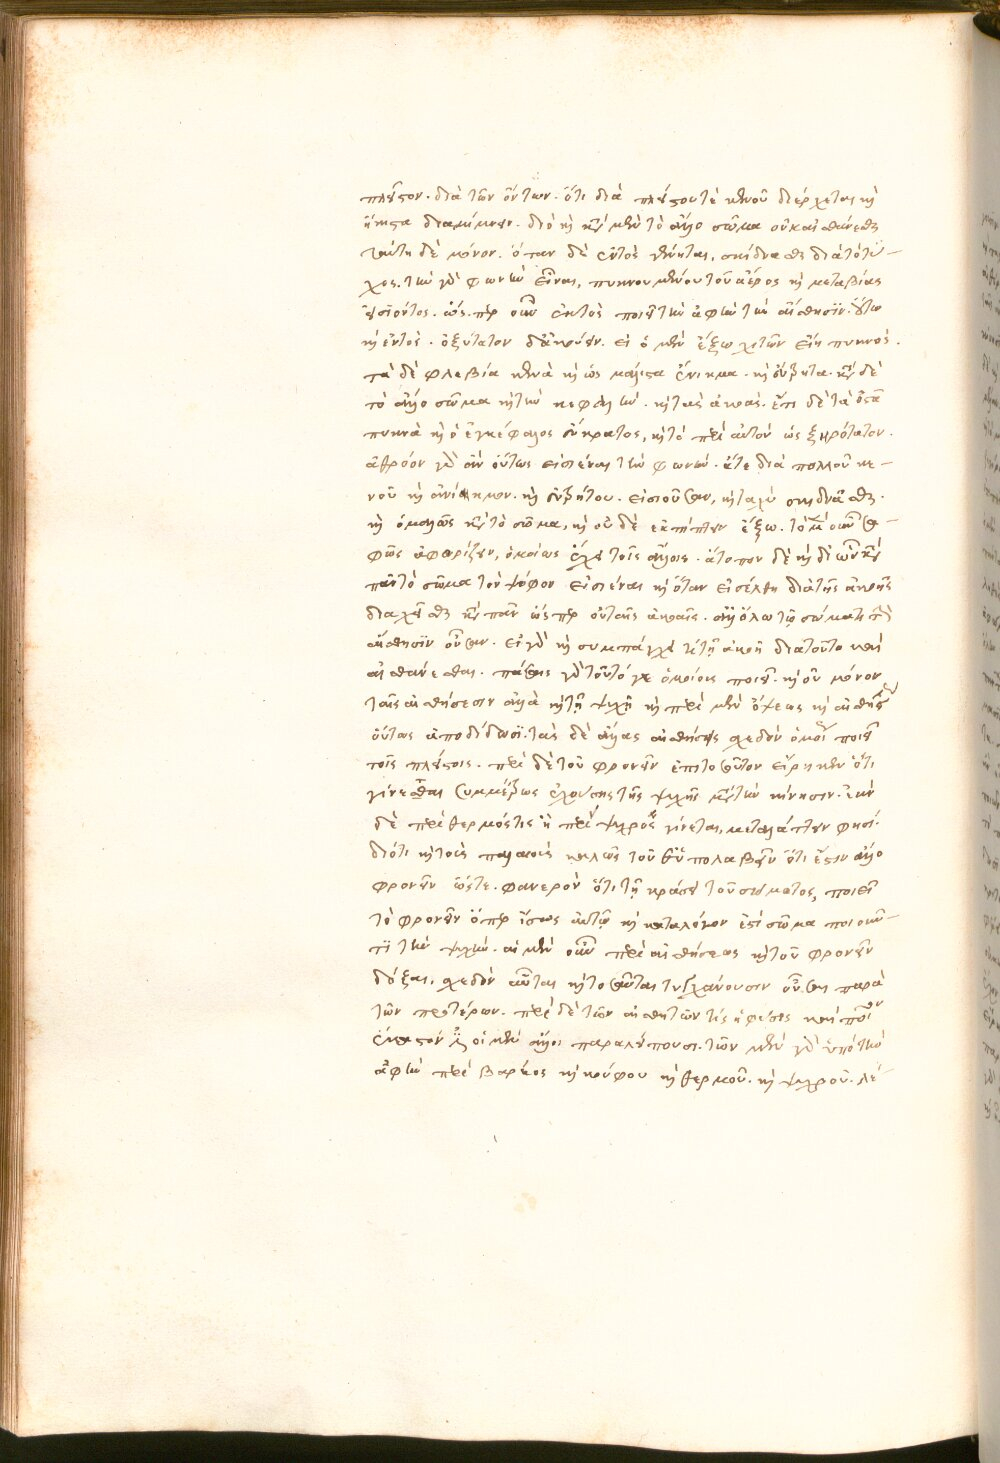 πλεῖστον. διὰ τῶν ὄντων. ὅτι διὰ πλείστου τὲ κενοῦ διέρχεται κὴ
ἥκιστα διαμένειν. διὸ κὴ κατὰ μὲν τὸ ἄλλο σῶμα οὐκ αἰσθάνεσθαι
ταύτη δὲ μόνον. ὅταν δὲ ἐντὸς γένηται, σκίδνασθαι διὰ τὸ τά-
χος. τὴν γὰρ φωνὴν εἶναι, πυκνουμένου τοῦ ἀέρος κὴ μεταβίας
εἰσιόντος. ὥσπερ οὖν ἐκτὸς ποιεῖ τὴν ἀφὴν τὴν αἴσθησιν. οὕτω
κὴ ἐντὸς. ὀξύτατον δ' ἀκούειν. εἰ ὁ μὲν ἔξω χιτῶν εἴη πυκνὸς.
τὰ δὲ φλεβία κενὰ κὴ ὡς μάλιστα ἄνικμα. κὴ εὔτρητα. κατὰ δὲ
τὸ ἄλλο σῶμα κὴ τὴν κεφαλήν. κὴ τὰς ἀκοὰς. ἔτι δὲ τὰ ὀστᾶ
πυκνὰ κὴ ὁ ἐγκέφαλος εὔκρατος, κὴ τὸ περὶ αὐτὸν ὡς ξηρότατον.
ἀθρόον γὰρ ἂν οὕτως εἰσιέναι τὴν φωνήν. ἅτε διὰ πολλοῦ κε-
νοῦ κὴ ἀνίκμου. κὴ εὐτρήτου. εἰσιοῦσαν, κὴ ταχὺ σκίδνασθαι.
κὴ ὁμαλῶς κατὰ τὸ σῶμα, κὴ οὐ δὲ ἐκπίπτειν ἔξω. τὸ μὲν οὖν σα-
φῶς ἀφορίζειν, ὁμοίως ἔχει τοῖς ἄλλοις. ἄτοπον δὲ κὴ δι ὧν κατὰ
πᾶν τὸ σῶμα τὸν ψόφον εἰσιέναι κὴ ὅταν εἰσέλθη διὰ τῆς ἀκοῆς
διαχεῖσθαι κατὰ πᾶν ὥσπερ οὐ ταῖς ἀκοαῖς. ἀλλ' ὅλω τῷ σώματι τὴν
αἴσθησιν οὖσαν. εἰ γὰρ κὴ συμπάχει τι τῇ ἀκοῆ διατοῦτο καὶ
αἰσθάνεσθαι. πάσαις γὰρ τοῦτό γε ὁμοίοις ποιεῖ. κὴ οὐ μόνον
ταῖς αἰσθήσεσιν ἀλλὰ κὴ τῇ ψυχῇ κὴ περὶ μὲν ὄψεως κὴ αἰσθήσεως
οὕτως ἀποδίδωσι. τὰς δὲ ἄλλας αἰσθήσεις σχεδὸν ὁμοίως ποιεῖ
τοῖς πλείστοις. περὶ δὲ τοῦ φρονεῖν ἐπιτοσοῦτον εἴρηκεν ὅτι
γίνεσθαι συμμέτρως ἐχούσης τῆς ψυχῆς μετὰ τὴν κίνησιν. ἐὰν
δὲ περὶ θερμός τις ἢ περὶ ψυχρὸς γίνεται, μεταλάττειν φησί.
διότι κὴ τοὺς παλαιοὺς καλῶς τοῦθ' ὑπολαβεῖν ὅτι ἔστιν ἄλλο
φρονεῖν ὥστε. φανερὸν ὅτι τῇ κράσει τοῦ σώματος, ποιεῖ
τὸ φρονεῖν ὅπερ ἴσως αὐτῷ κὴ καταλόγον ἐστὶ σῶμα ποιοῦν-
τι τὴν ψυχήν. αἱ μὲν οὖν περὶ αἰσθήσεως κὴ τοῦ φρονεῖν
δόξαι, σχεδὸν αὗται κὴ τοσαῦται τυγχάνουσιν οὖσαι παρὰ
τῶν προτέρων. περὶ δὲ τῶν αἰσθητῶν τίς ἡ φύσις καὶ ποῖον
ἕκαστόν ἐστιν οἱ μὲν ἄλλοι παραλείπουσι. τῶν μὲν γὰρ ὑπὸ τὴν
ἀφὴν περὶ βαρέος κὴ κούφου κὴ θερμοῦ. κὴ ψυχροῦ. λέ-